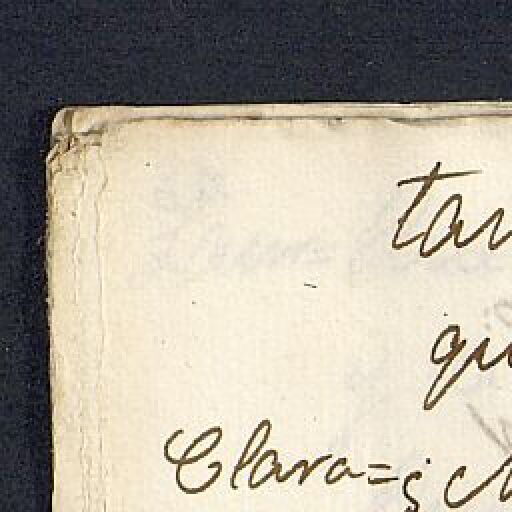 tan
qu
Clara=¿